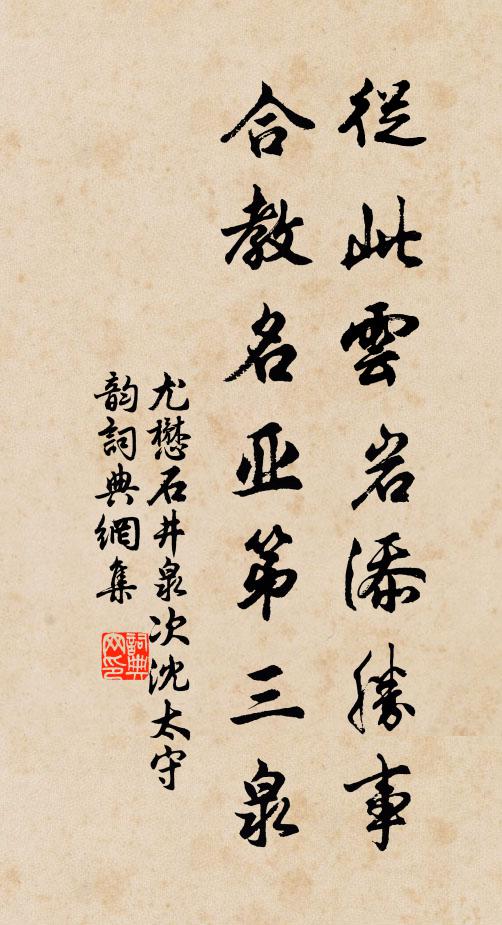 從此雲岩添勝事
合教名亚第三泉
尤懋石井泉次沈太守
韵詞典網集
詞典
网印